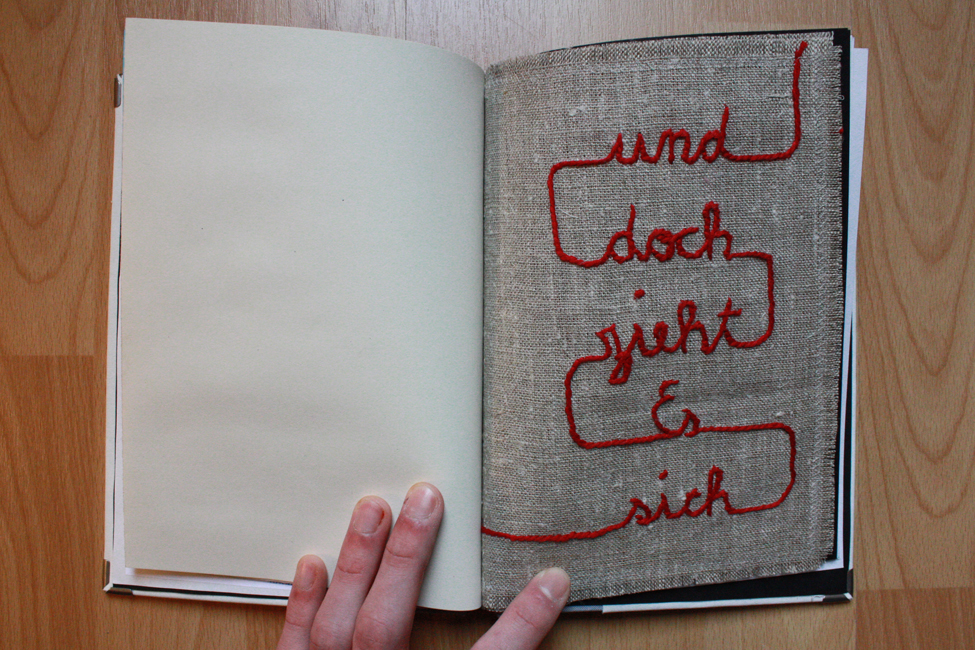 und
doch
zieht
Es
sich